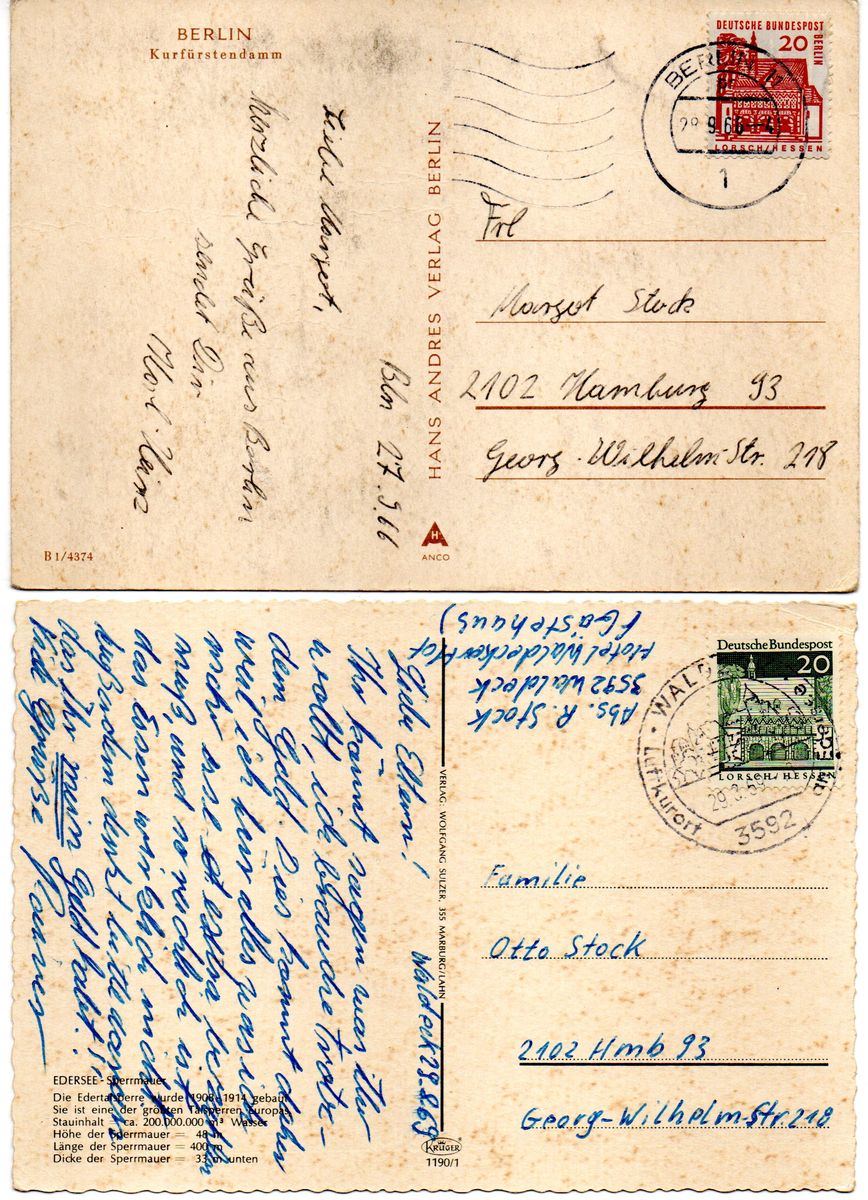 BERLIN
Kurfürstendamm
DEUTSCHE BUNDESPOST BERLIN
20
LORSCH/HESSEN
BERLIN 11
28.9.66
1
Bln 27.9.66
Liebe Margot,
Herzliche Grüße aus Berlin
sendet Dir
Karl-Heinz
HANS ANDRES VERLAG BERLIN
Frl
Margot Stock
2102 Hamburg 93
Georg-Wilhelm-Str. 218
B 1/4374
H
ANCO
Abs. R. Stock
3592 Waldeck
Hotel Waldecker Hof
(Gästehaus)
Deutsche Bundespost
20
LORSCH/HESSEN
WALDECK
Luftkurort
3592
Waldeck 29.8.69
Liebe Eltern!
Ihr könnt sagen was Ihr
wollt, ich brauche trotz-
dem Geld. Dies kommt daher
weil ich hier alles was ich
mehr esse extra bezahlen
muß, und so reichlich ist
das Essen wirklich nicht.
Außerdem denkt bitte daran
das Ihr mein Geld habt!
Viele Grüße
Rainer
VERLAG: WOLFGANG SULZER, 355 MARBURG/LAHN
Familie
Otto Stock
2102 Hmb 93
Georg-Wilhelm-Str 218
EDERSEE - Sperrmauer
Die Edertalsperre wurde 1908-1914 gebaut
Sie ist eine der größten Talsperren Europas
Stauinhalt = ca. 200.000.000 m³ Wasser
Höhe der Sperrmauer = 48 m
Länge der Sperrmauer = 400 m
Dicke der Sperrmauer = 33 m unten
KRÜGER
1190/1